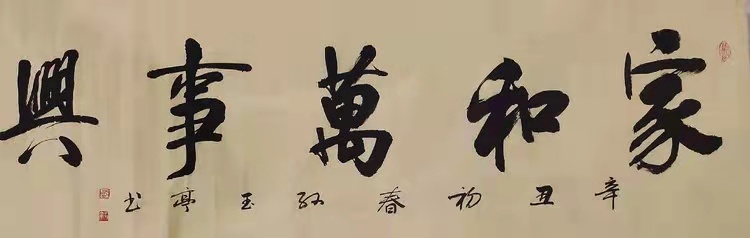 家和萬事興
辛丑初春孙玉亭书